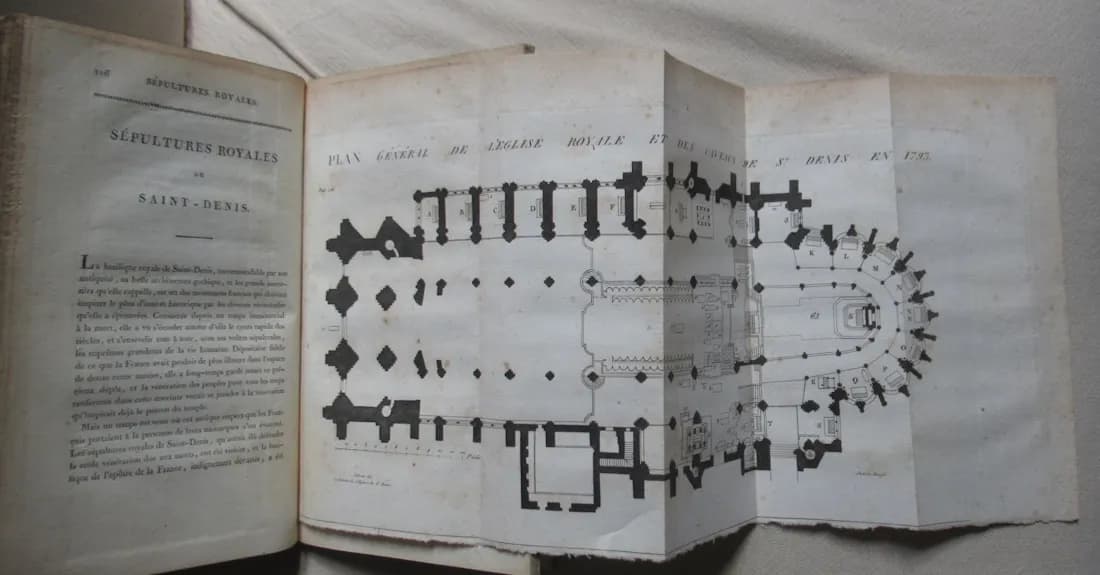 SÉPULTURES ROYALES.
SÉPULTURES ROYALES
DE
SAINT-DENIS.
La basilique royale de Saint-Denis, recommandable par son
antiquité, sa belle architecture gothique, et les grands souve-
nirs qu'elle rappelle, est un des monumens français qui doivent
inspirer le plus d'intérêt historique par les diverses vicissitudes
qu'elle a éprouvées. Consacrée depuis un temps immémorial
à la mort, elle a vu s'écouler autour d'elle le cours rapide des
siècles, et s'ensevelir tour à tour, sous ses voûtes sépulcrales,
les orgueilleuses grandeurs de la vie humaine. Dépositaire fidèle
de ce que la France avait produit de plus illustre dans l'espace
de douze cents années, elle a long-temps gardé intact ce pré-
cieux dépôt, et la vénération des peuples pour tous les corps
renfermés dans cette enceinte venait se joindre à la vénération
qu'inspirait déjà le patron du temple.
Mais un temps est venu où cet antique respect que les Fran-
çais portaient à la personne de leurs monarques s'est évanoui.
Les sépultures royales de Saint-Denis, qu'aurait dû défendre
la seule vénération due aux morts, ont été violées, et la basi-
lique de l'apôtre de la France, indignement dévastée, a été
PLAN GÉNÉRAL DE L'ÉGLISE ROYALE ET DES CAVEAUX DE St DENIS EN 1793.
A B C D E F
K L M
O
P
Q
R
S
T